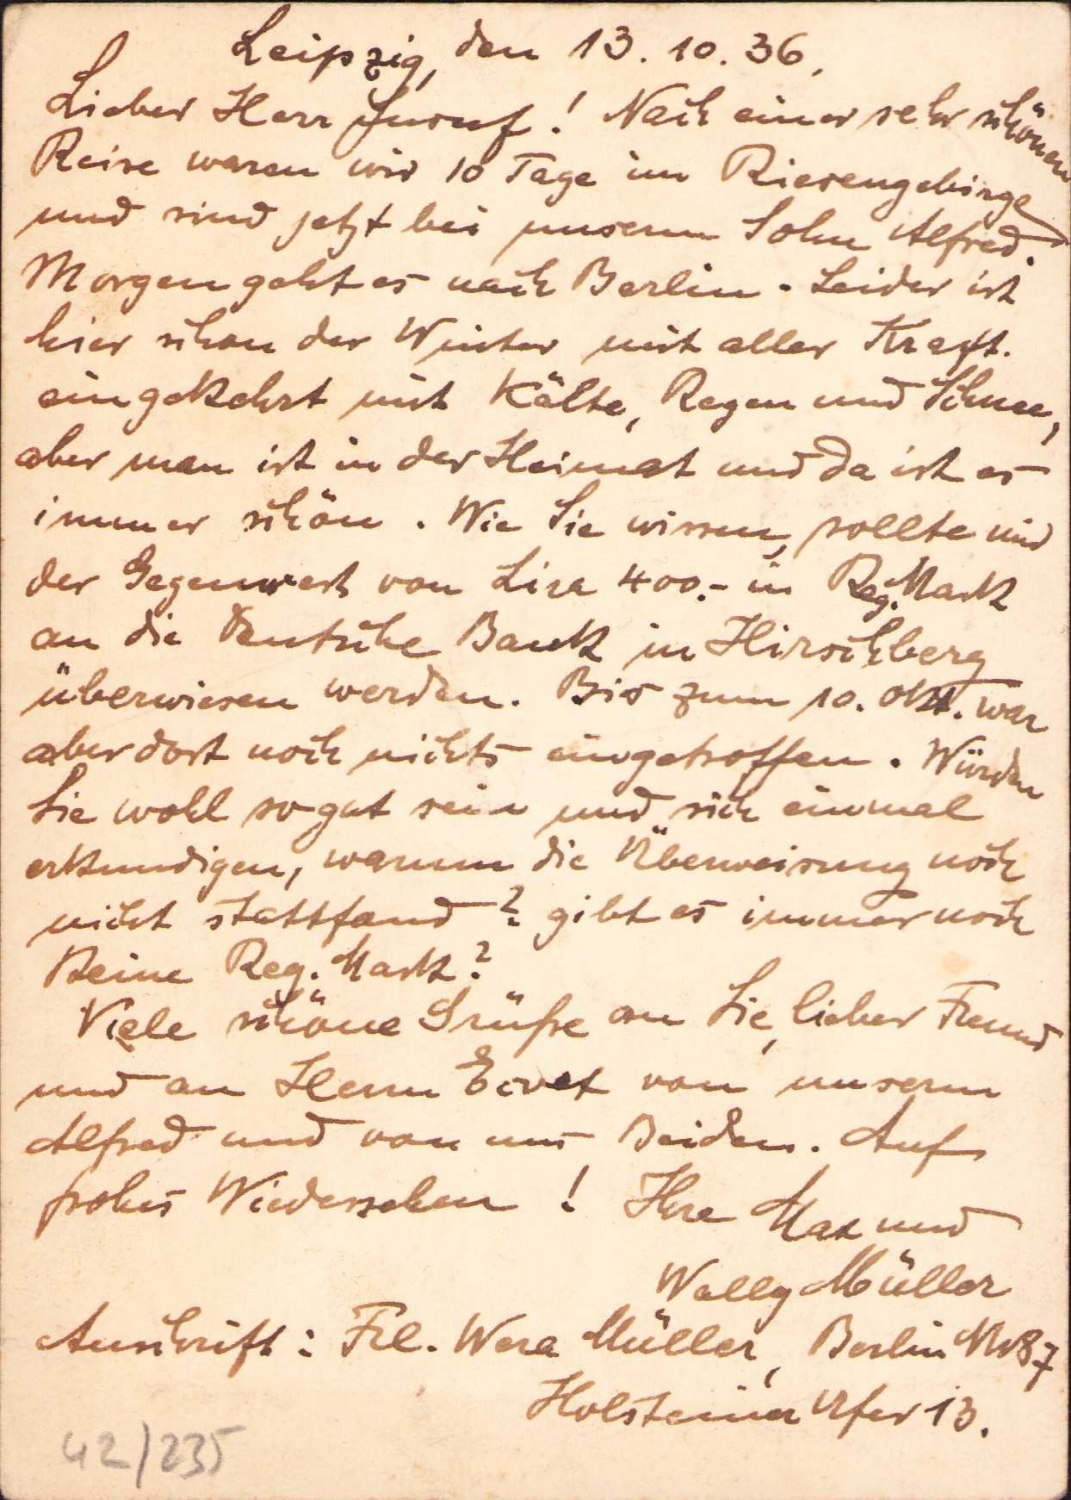 Leipzig, den 13. 10. 36.
Lieber Herr Jusuf! Nach einer sehr schönen
Reise waren wir 10 Tage im Riesengebirge
und sind jetzt bei unserm Sohn Alfred.
Morgen geht es nach Berlin. Leider ist
hier schon der Winter mit aller Kraft.
eingekehrt mit Kälte, Regen und Schnee,
aber man ist in der Heimat und da ist es
immer schön. Wie Sie wissen, sollte mir
der Gegenwert von Lira 400.- in Reg. Mark
an die Deutsche Bank in Hirschberg
überwiesen werden. Bis zum 10. Okt. war
aber dort noch nichts eingetroffen. Würden
Sie wohl so gut sein und sich einmal
erkundigen, warum die Überweisung noch
nicht stattfand? gibt es immer noch
keine Reg. Mark?
Viele schöne Grüße an Sie, lieber Freund
und an Herrn von unserm
Alfred und von uns Beiden. Auf
frohes Wiedersehen! Ihre Max und
Wally Müller
Anschrift: Frl. Wera Müller, Berlin NW87
Holsteiner Ufer 13.
42/235